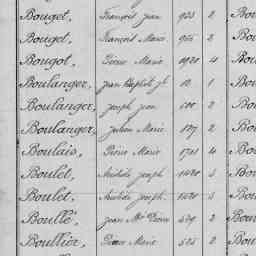 Bouget, François Jean 953 2 Bou
Bouget, François Marie 955 2 Bou
Bougot, Pierre Marie 1920 4 Bou
Boulanger, Jean Baptiste 10 1 Bou
Boulanger, Joseph Jean 600 2 Bou
Boulanger, Julien Marie 2 Bou
Boulais, Pierre Marie 1701 4 Bou
Boulet, Aristide Joseph 1480 3 Bou
Boulet, Aristide Joseph 3 Bou
Boullé, Jean Mie Pierre 579 2 Bou
Boullier, Pierre Marie 525 2 Bou